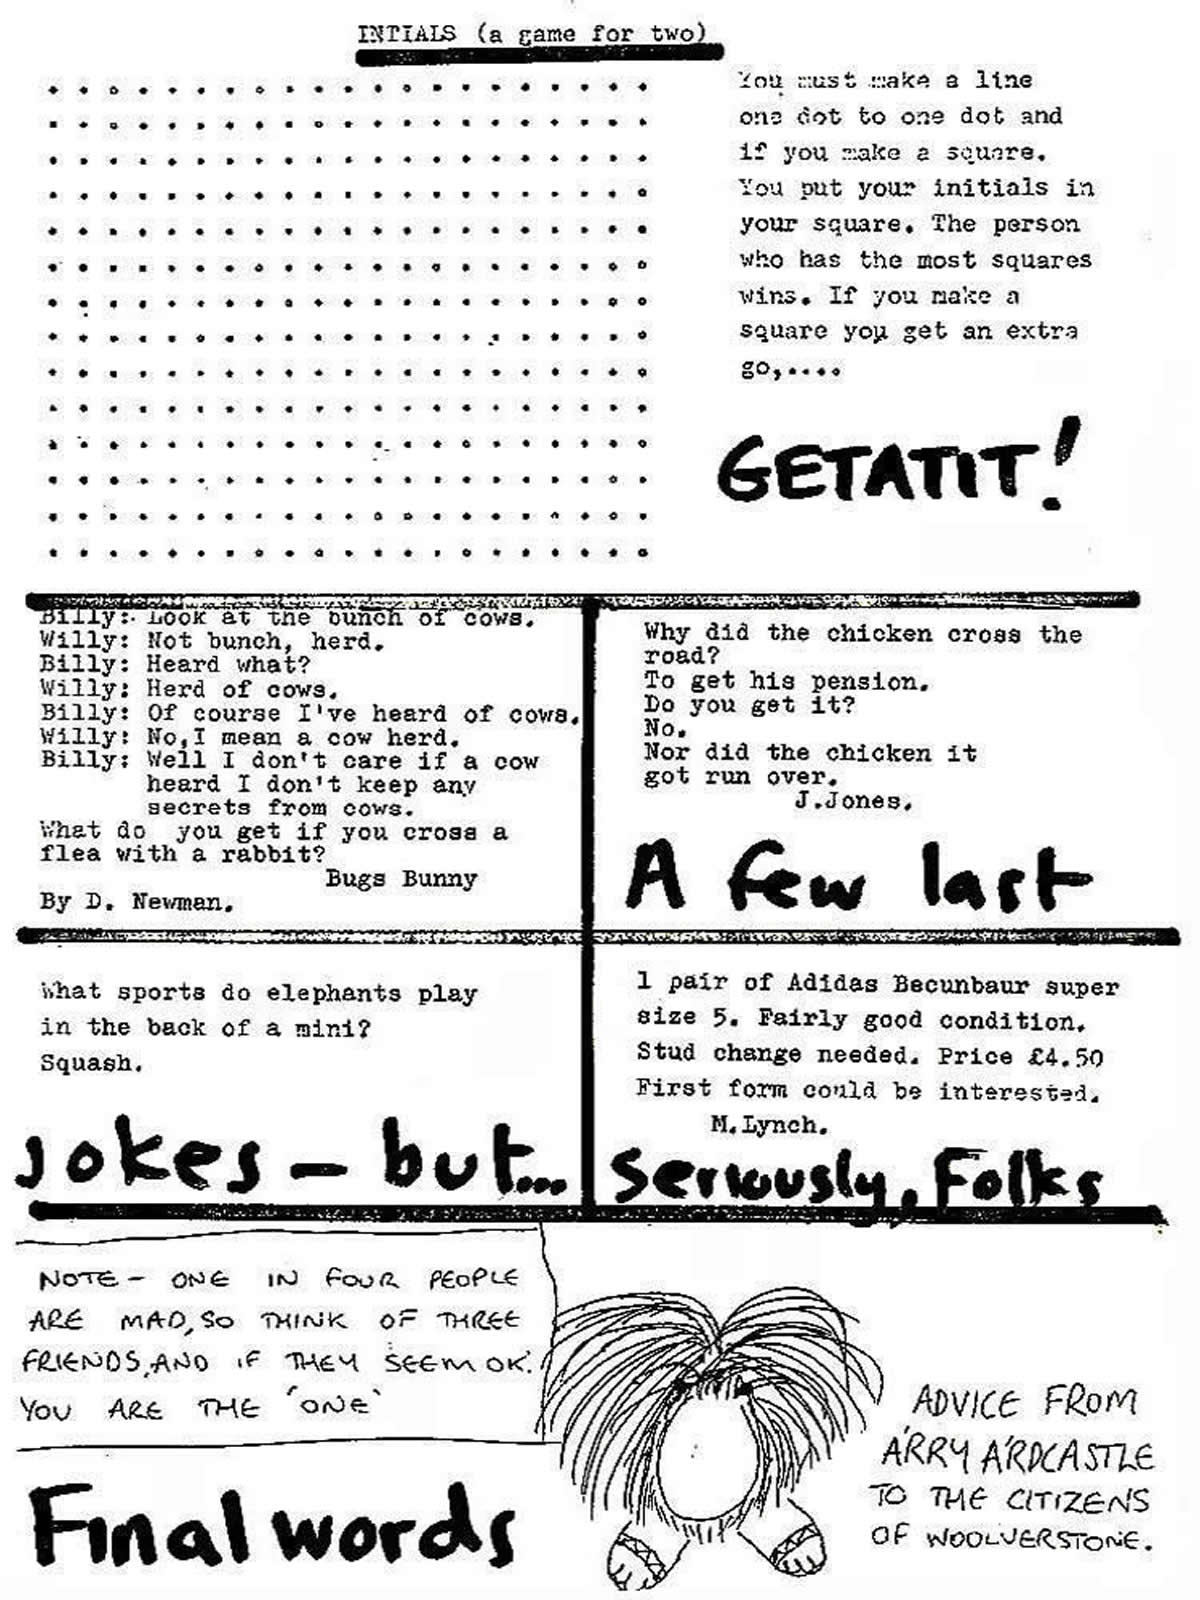 INTIALS (a game for two)
You must make a line
one dot to one dot and
if you make a square.
You put your initials in
your square. The person
who has the most squares
wins. If you make a
square you get an extra
go,....
GETATIT!
Billy: Look at the bunch of cows.
Willy: Not bunch, herd.
Billy: Heard what?
Willy: Herd of cows.
Billy: Of course I've heard of cows.
Willy: No,I mean a cow herd.
Billy: Well I don't care if a cow
heard I don't keep any
secrets from cows.
What do you get if you cross a
flea with a rabbit?
Bugs Bunny
By D. Newman.
Why did the chicken cross the
road?
To get his pension.
Do you get it?
No.
Nor did the chicken it
got run over.
J.Jones.
A few last
What sports do elephants play
in the back of a mini?
Squash.
jokes - but...
1 pair of Adidas Becunbaur super
size 5. Fairly good condition.
Stud change needed. Price £4.50
First form could be interested.
M.Lynch.
Seriously, Folks
NOTE - ONE IN FOUR PEOPLE
ARE MAD, SO THINK OF THREE
FRIENDS, AND IF THEY SEEM OK.
YOU ARE THE 'ONE'
Final words
ADVICE FROM
'ARRY 'ARDCASTLE
TO THE CITIZENS
OF WOOLVERSTONE.